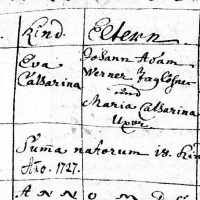 Kind. Eltern.
Eva Johann Adam
Catharina Werner Taglöhner
und
Maria Catharina
Uxor
Suma natorum 18. Kin
Ao. 1727.
ANNO MD